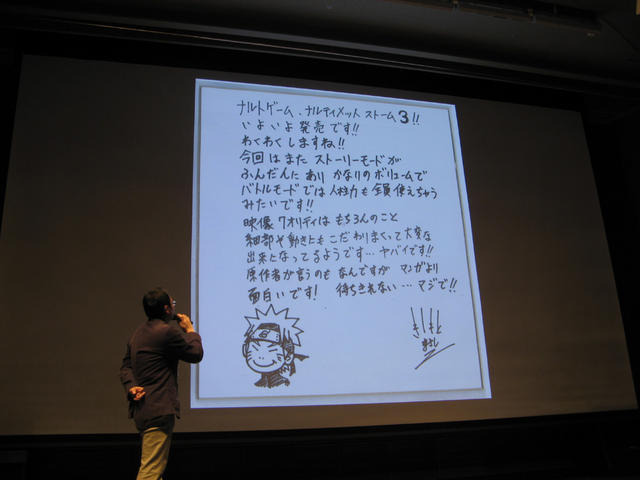 ナルトゲーム、ナルティメット ストーム3!!
いよいよ発売です!!
わくわくしますね!!
今回はまた ストーリーモードが
ふんだんに あり かなりのボリュームで
バトルモードでは 人柱力も 全員使えちゃう
みたいです!!
映像クオリティは もちろんのこと
細部や動きにもこだわりまくって大変な
出来となってるようです…ヤバイです!!
原作者が言うのも なんですが マンガより
面白いです! 待ちきれない…マジで!!
きしもと
まさし